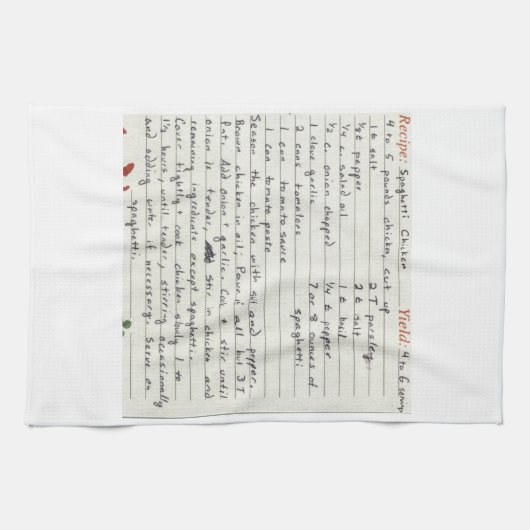 Recipe: Spaghetti Chicken Yield: 4 to 6 servings
4 to 5 pounds chicken, cut up 2 T parsley
1 t salt 2 t salt
1/8 t pepper 1 t basil
1/4 c. salad oil 1/4 t pepper
1/2 c. onion chopped 7 or 8 ounces of
1 clove garlic spaghetti
2 cans tomatoes
1 can tomato sauce
1 can tomato paste
Season the chicken with salt and pepper.
Brown chicken in oil; Pour off all but 3 T
fat. Add onion & garlic. Cook & stir until
onion is tender. Stir in chicken and
remaining ingredients except spaghetti.
Cover tightly & cook chicken slowly 1 to
1 1/2 hours, until tender, stirring occasionally
and adding water if necessary. Serve on
spaghetti.